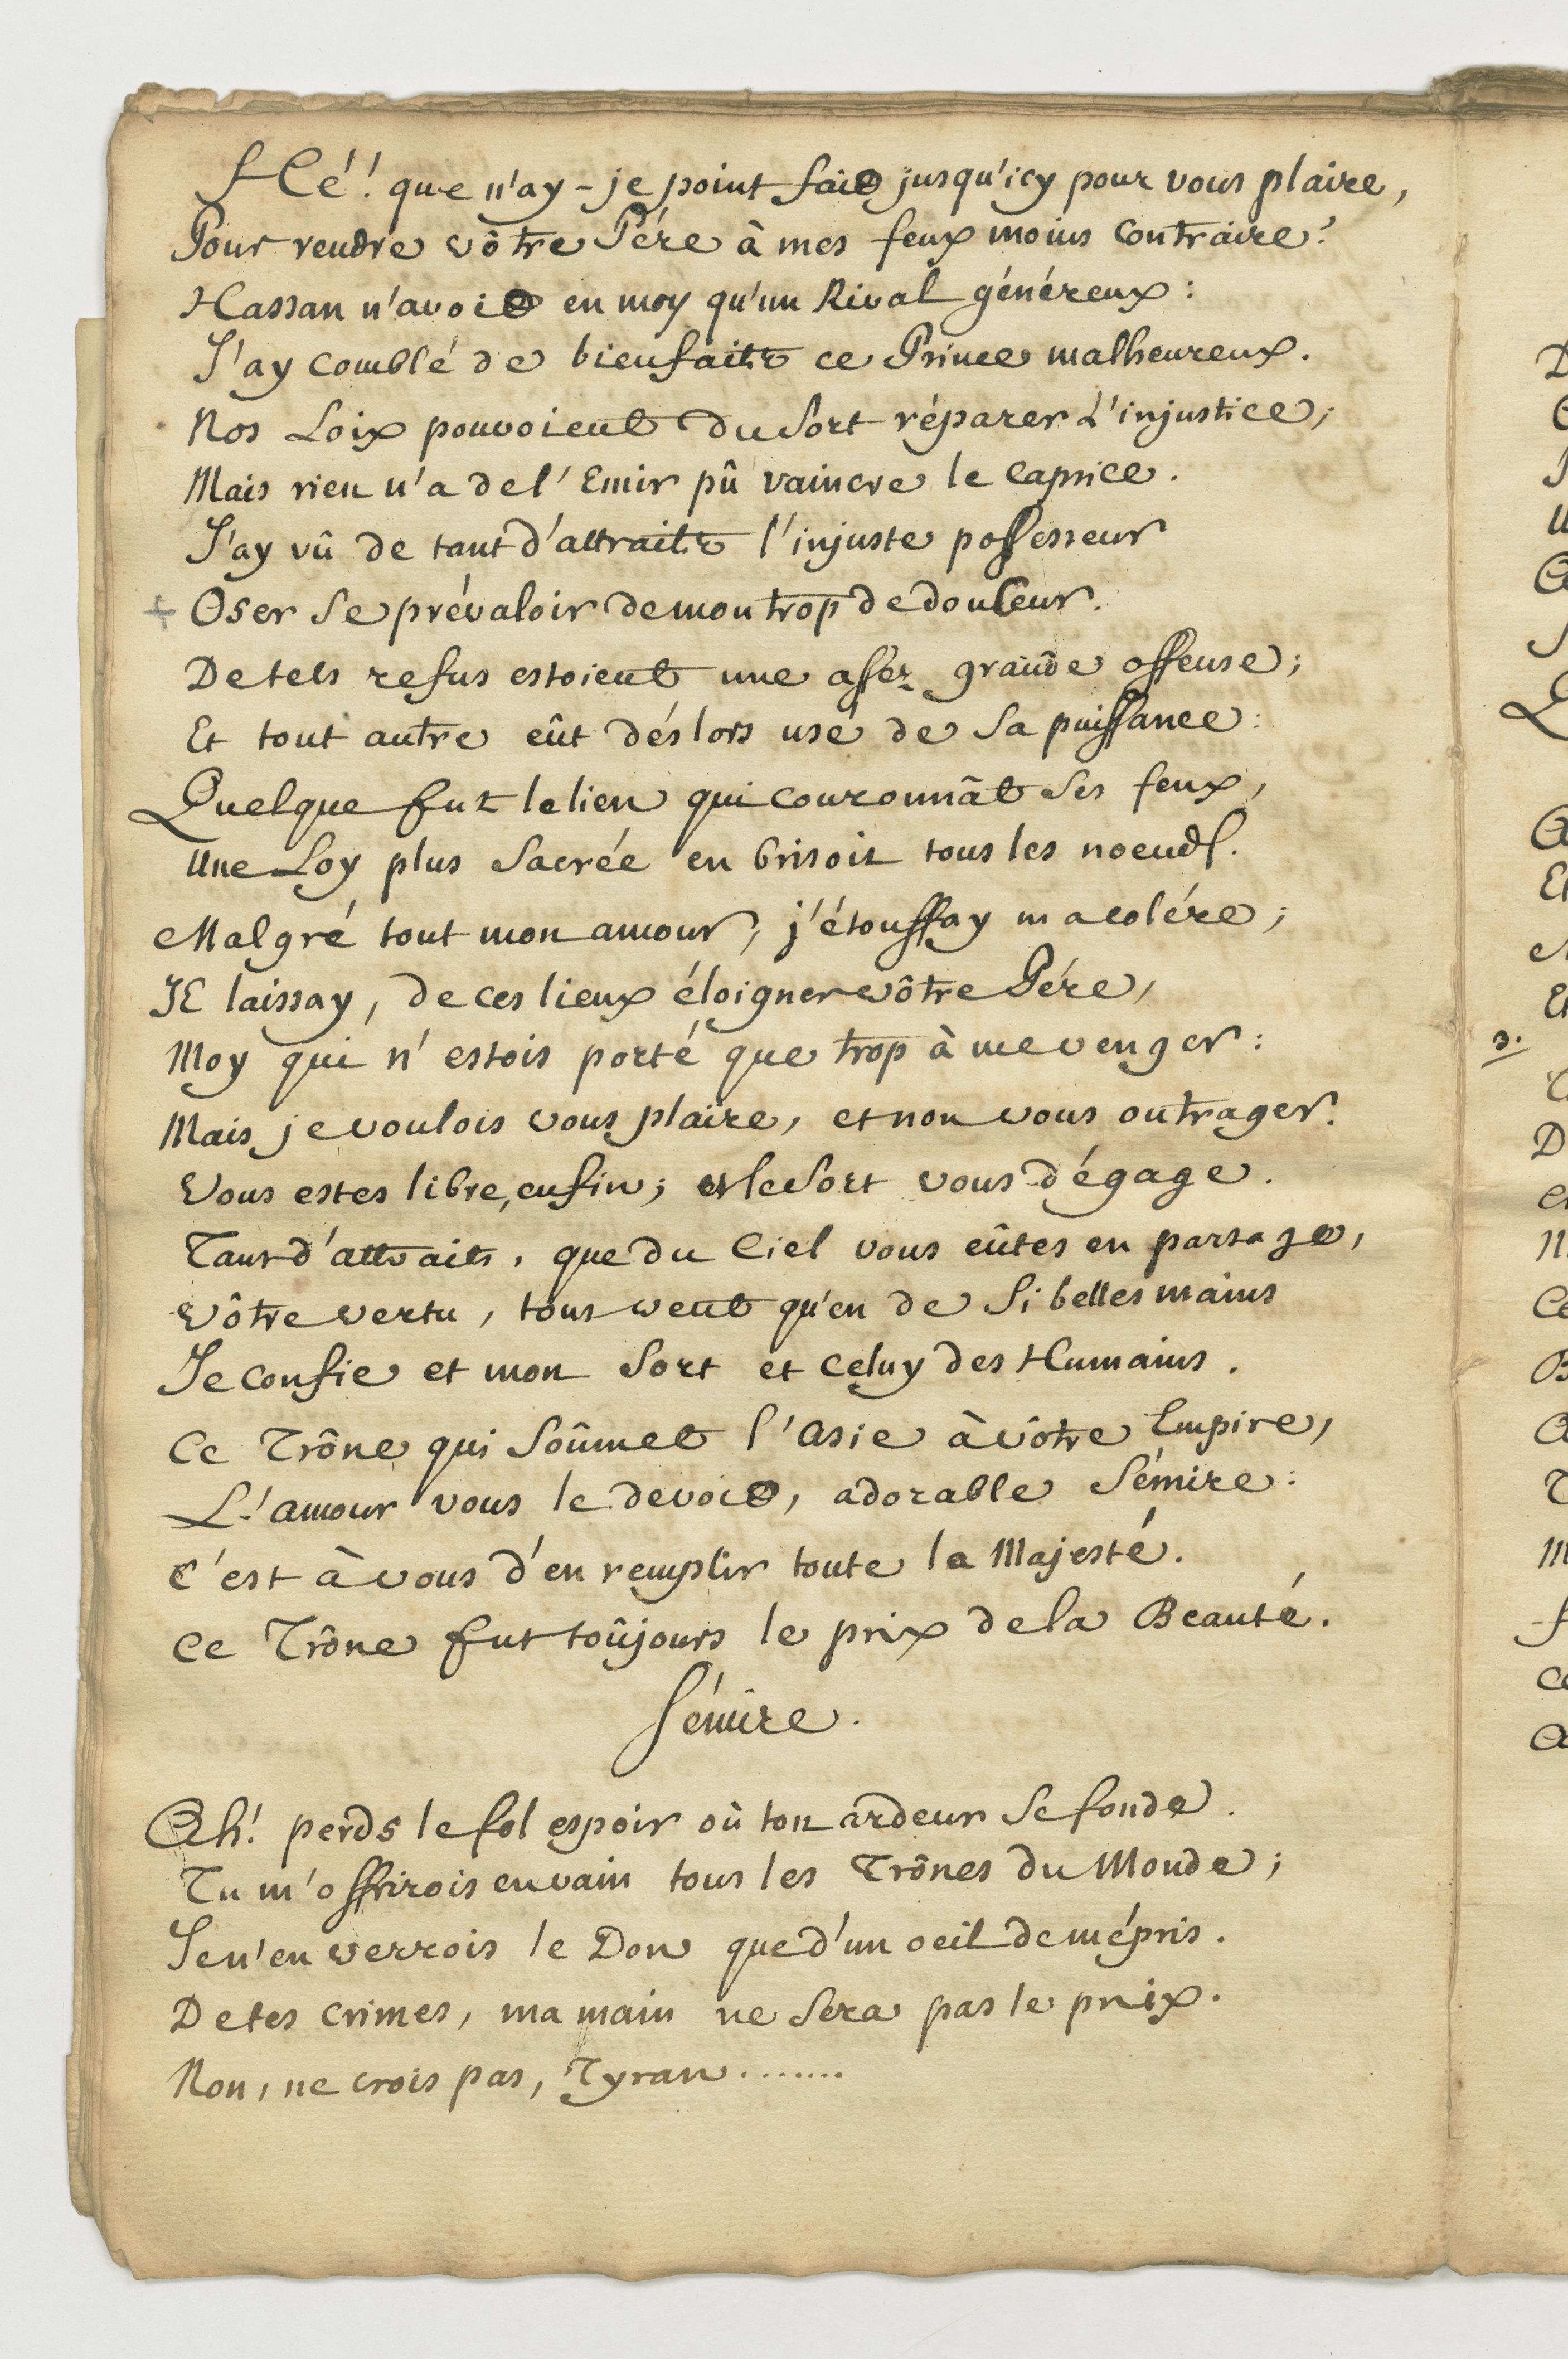 Hé! que n'ay-je point fait jusqu'icy pour vous plaire,
Pour rendre vôtre Pére à mes feux moins contraire?
Hassan n'avoit en moy qu'un Rival généreux:
J'ay comblé de bienfaits ce Prince malheureux.
Nos Loix pouvoient du Sort réparer L'injustice;
Mais rien n'a de l'Emir pû vaincre le Caprice.
J'ay vû de tant d'attraits l'injuste possesseur
+ Oser Se prévaloir de mon trop de douceur.
De tels refus estoient une assez grande offense;
Et tout autre eût déslors usé de Sa puissance:
Quelque fut le lien qui couronnât Ses feux,
Une Loy plus Sacrée en brisoit tous les noeuds.
Malgré tout mon amour, j'étouffay ma colére;
JE laissay, de ces lieux éloigner vôtre Pére,
Moy qui n'estois porté que trop à me venger:
Mais je voulois vous plaire, et non vous outrager.
Vous estes libre, enfin; et le Sort vous dégage.
Tant d'attraits, que du Ciel vous eûtes en partage,
Vôtre vertu, tout veut qu'en de Si belles mains
Je confie et mon Sort et celuy des Humains.
Ce Trône qui Soûmet l'Asie à vôtre Empire,
L'amour vous le devoit, adorable Sémire:
C'est à vous d'en remplir toute la Majesté.
Ce Trône fut toûjours le prix de la Beauté.
Sémire.
Ah! perds le fol espoir où ton ardeur Se fonde.
Tu m'offrirois en vain tous les Trônes du Monde;
Je n'en verrois le Don que d'un oeil de mépris.
De tes crimes, ma main ne Sera pas le prix.
Non, ne crois pas, Tyran.......
3.